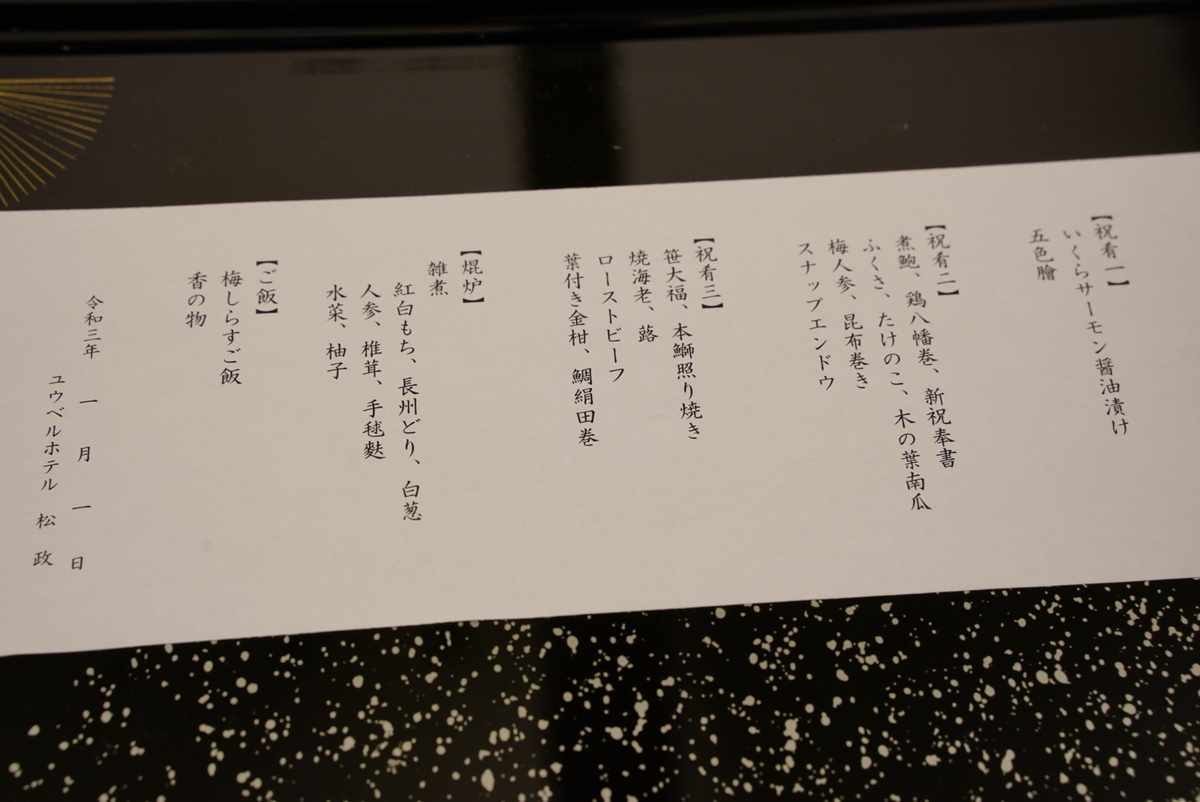 【祝肴一】
いくらサーモン醤油漬け
五色膾
【祝肴二】
煮鮑、鶏八幡巻、新祝奉書
ふくさ、たけのこ、木の葉南瓜
梅人参、昆布巻き
スナップエンドウ
【祝肴三】
笹大福、本鰤照り焼き
焼海老、蕗
ローストビーフ
葉付き金柑、鯛絹田巻
【焜炉】
雑煮
紅白もち、長州どり、白葱、
人参、椎茸、手毬麩
水菜、柚子
【ご飯】
梅しらすご飯
香の物
令和三年 一月一日
ユウベルホテル 松政